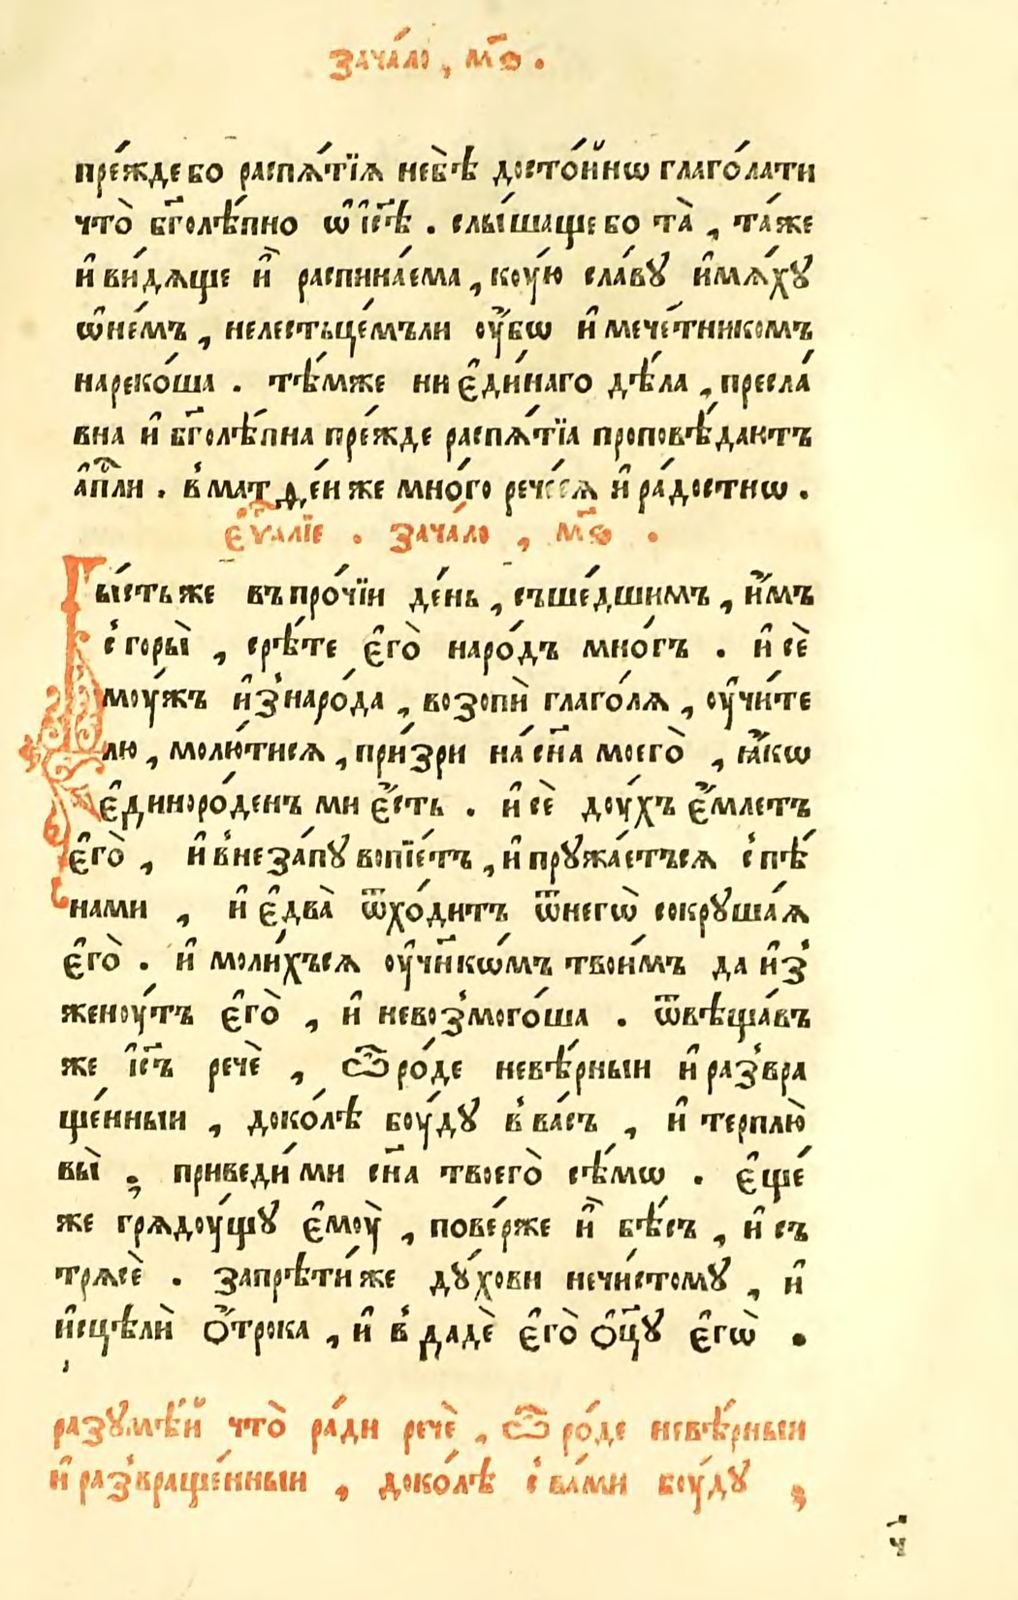 зача́ло , м҃ѳ .
пре́жде бо распѧ́тїѧ небѣ̀ досто́йнѡ глаго́лати
что̀ бг҃олѣ́пно ѡ҆ і҆с҃ѣ . слы́шаще бо та̀ , та́же
и҆ ви́дѧще и҆̀ распина́ема , коу́ю сла́вꙋ и҆мѧ́хꙋ
ѡ҆не́мъ , нелестьце́мъли оу҆́бѡ и҆ мече́тникомъ
нареко́ша . тѣ́мже ни є҆ди́наго дѣ́ла , пресла́
вна и҆ бг҃олѣ́пна пре́жде распѧ́тїа проповѣ́даютъ
а҆пⷭ҇ли . в̾ матѳе́и же мно́го рече́сѧ и҆ ра́достнѡ .
є҆ѵⷢ҇алїе . зача́ло , м҃ѳ .
Бы́сть же въ про́чїи де́нь , съше́дшимъ , и҆́мъ
с̾ горы̀ , срѣ́те є҆го̀ наро́дъ мно́гъ . и҆ сѐ
моу́жъ и҆з̾ наро́да , возопѝ глаго́лѧ , оу҆чи́те
лю , молю́тисѧ , при́зри на́ сн҃а моего̀ , ꙗ҆́кѡ
є҆диноро́денъ ми є҆́сть . и҆ сѐ доу́хъ є҆́млетъ
є҆го̀ , и҆ в̾незаⷫ҇пꙋ вопїе́тъ , и҆ прꙋжа́етъсѧ с̾ пѣ́
нами , и҆ є҆два̀ ѿхо́дитъ ѿнегѡ̀ сокрꙋша́ѧ
є҆го̀ . и҆ моли́хъсѧ оу҆чн҃кѡ́мъ твои́мъ да и҆з̾
женоу́тъ є҆го̀ , и҆ невоз̾мого́ша . ѿвѣща́въ
же і҆с҃ъ речѐ , ѽ ро́де невѣ́рныи и҆ раз̾вра
ще́нныи , доко́лѣ боу́дꙋ в̾ ва́съ , и҆ терплю̀
вы̀ ; приведи́ ми сн҃а твоего̀ сѣ́мѡ . є҆ще́
же грѧдоу́щꙋ є҆моу̀ , пове́рже и҆̀ бѣ́съ , и҆ съ
трѧсѐ . запрѣти́ же дꙋ́хови нечи́стомꙋ , и҆
и҆сцѣлѝ ѻ҆́трока , и҆ в̾дадѐ є҆го̀ ѻ҆ц҃ꙋ є҆гѡ̀ .
разꙋмѣ́й что̀ ра́ди речѐ , ѽ ро́де невѣ́рныи
и҆ раз̾враще́нныи , доко́лѣ с̾ ва́ми боу́дꙋ ;
ч҃